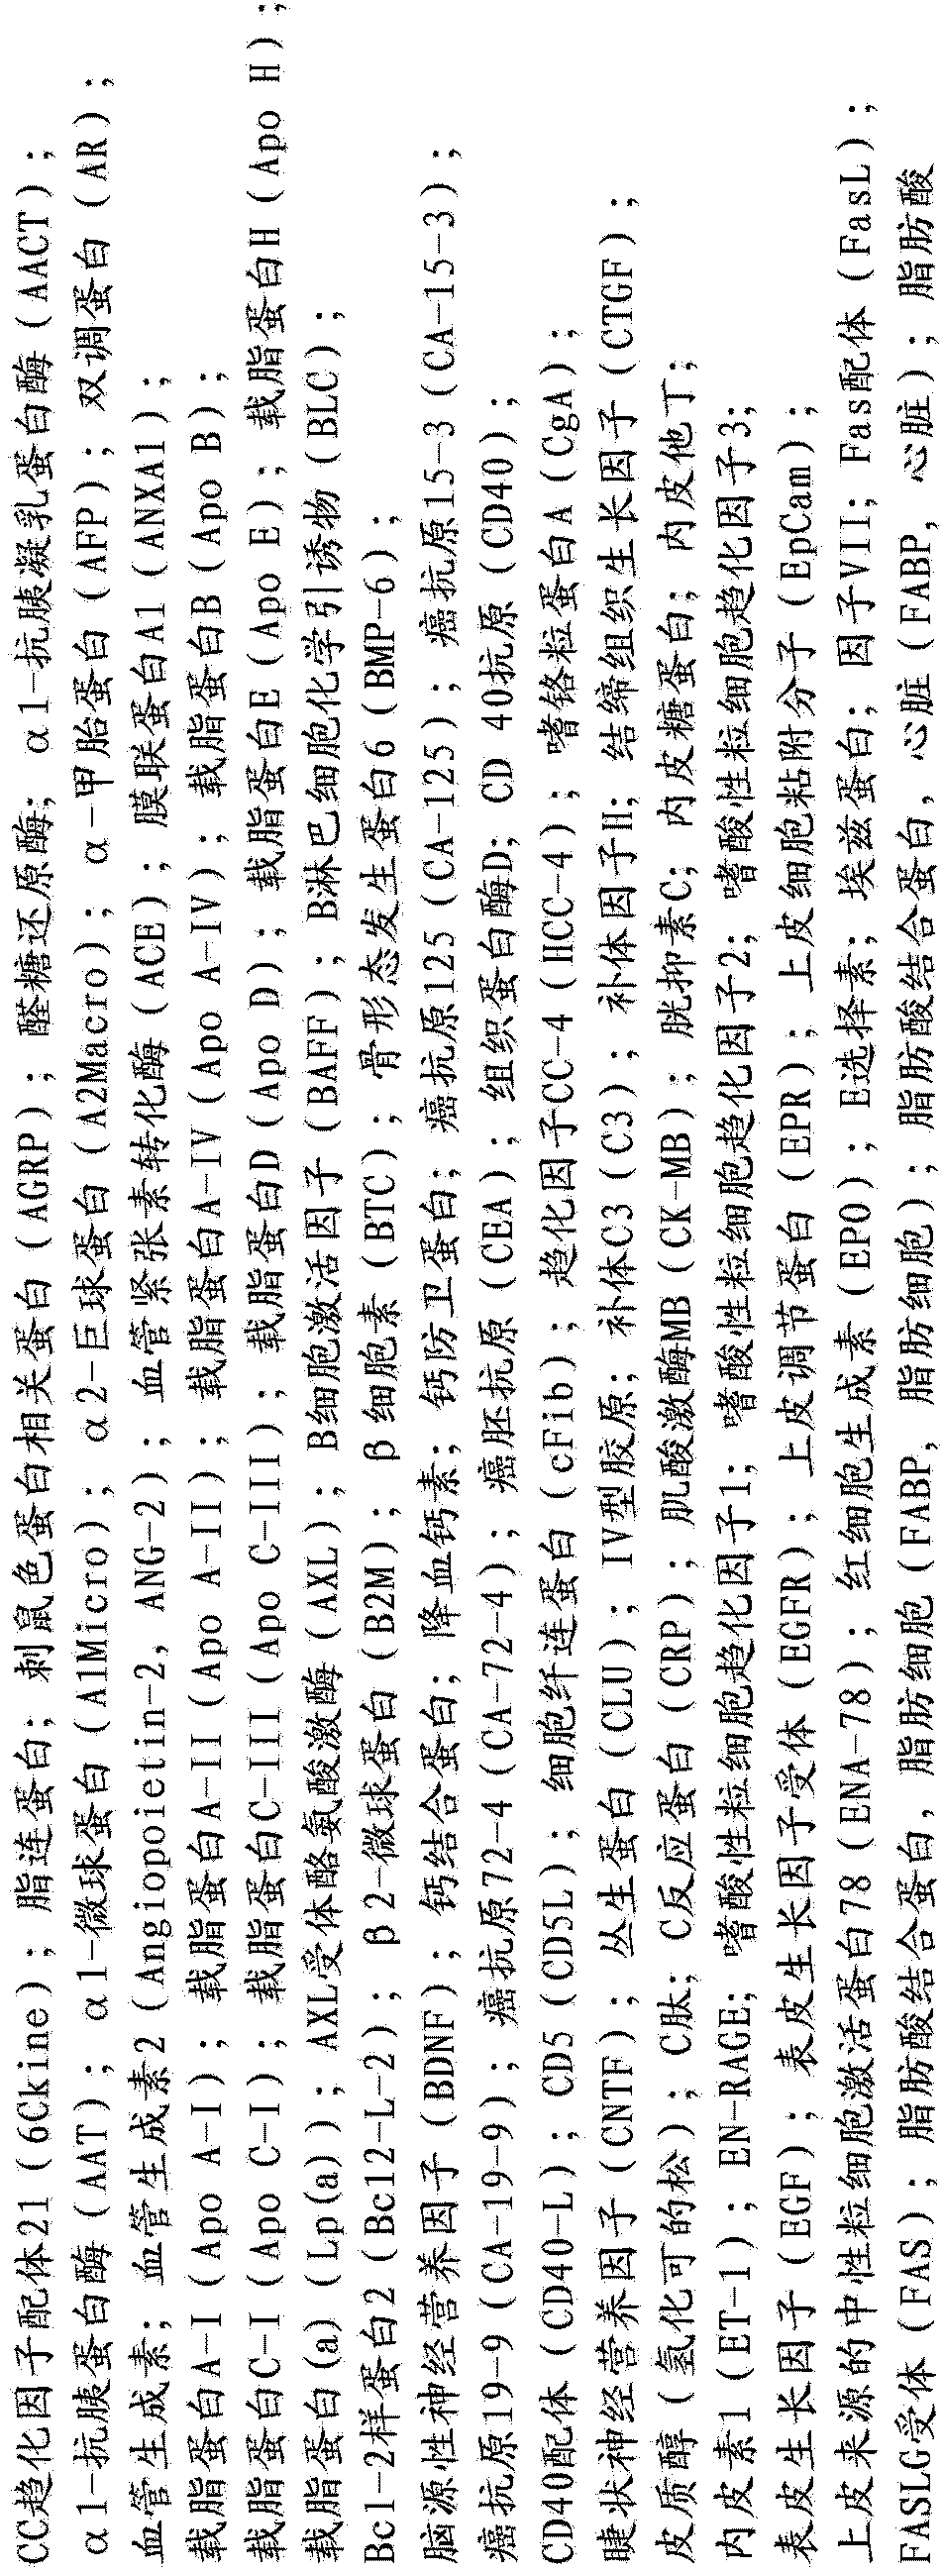 CC趋化因子配体21(6Ckine)；脂连蛋白；刺鼠色蛋白相关蛋白(AGRP)；醛糖还原酶；α1-抗胰凝乳蛋白酶(AACT)；
α1-抗胰蛋白酶(AAT)；α1-微球蛋白(A1Micro)；α2-巨球蛋白(A2Macro)；α-甲胎蛋白(AFP)；双调蛋白(AR)；
血管生成素；血管生成素2(Angiopoietin-2, ANG-2)；血管紧张素转化酶(ACE)；膜联蛋白A1(ANXA1)；
载脂蛋白A-I(Apo A-I)；载脂蛋白A-II(Apo A-II)；载脂蛋白A-IV(Apo A-IV)；载脂蛋白B(Apo B)；
载脂蛋白C-I(Apo C-I)；载脂蛋白C-III(Apo C-III)；载脂蛋白D(Apo D)；载脂蛋白E(Apo E)；载脂蛋白H(Apo H)；
载脂蛋白(a)(Lp(a))；AXL受体酪氨酸激酶(AXL)；B细胞激活因子(BAFF)；B淋巴细胞化学引诱物(BLC)；
Bcl-2样蛋白2(Bcl2-L-2)；β2-微球蛋白(B2M)；β细胞素(BTC)；骨形态发生蛋白6(BMP-6)；
脑源性神经营养因子(BDNF)；钙结合蛋白；降血钙素；钙防卫蛋白；癌抗原125(CA-125)；癌抗原15-3(CA-15-3)；
癌抗原19-9(CA-19-9)；癌抗原72-4(CA-72-4)；癌胚抗原(CEA)；组织蛋白酶D；CD 40抗原(CD40)；
CD40配体(CD40-L)；CD5(CD5L)；细胞纤连蛋白(cFib)；趋化因子CC-4(HCC-4)；嗜铬粒蛋白A(CgA)；
睫状神经营养因子(CNTF)；丛生蛋白(CLU)；IV型胶原；补体C3(C3)；补体因子H；结缔组织生长因子(CTGF)；
皮质醇(氢化可的松)；C肽；C反应蛋白(CRP)；肌酸激酶MB(CK-MB)；胱抑素C；内皮糖蛋白；内皮他丁；
内皮素1(ET-1)；EN-RAGE；嗜酸性粒细胞趋化因子1；嗜酸性粒细胞趋化因子2；嗜酸性粒细胞趋化因子3；
表皮生长因子(EGF)；表皮生长因子受体(EGFR)；上皮调节蛋白(EPR)；上皮细胞粘附分子(EpCam)；
上皮来源的中性粒细胞激活蛋白78(ENA-78)；红细胞生成素(EPO)；E选择素；埃兹蛋白；因子VII；Fas配体(FasL)；
FASLG受体(FAS)；脂肪酸结合蛋白，脂肪细胞(FABP，脂肪细胞)；脂肪酸结合蛋白，心脏(FABP，心脏)；脂肪酸